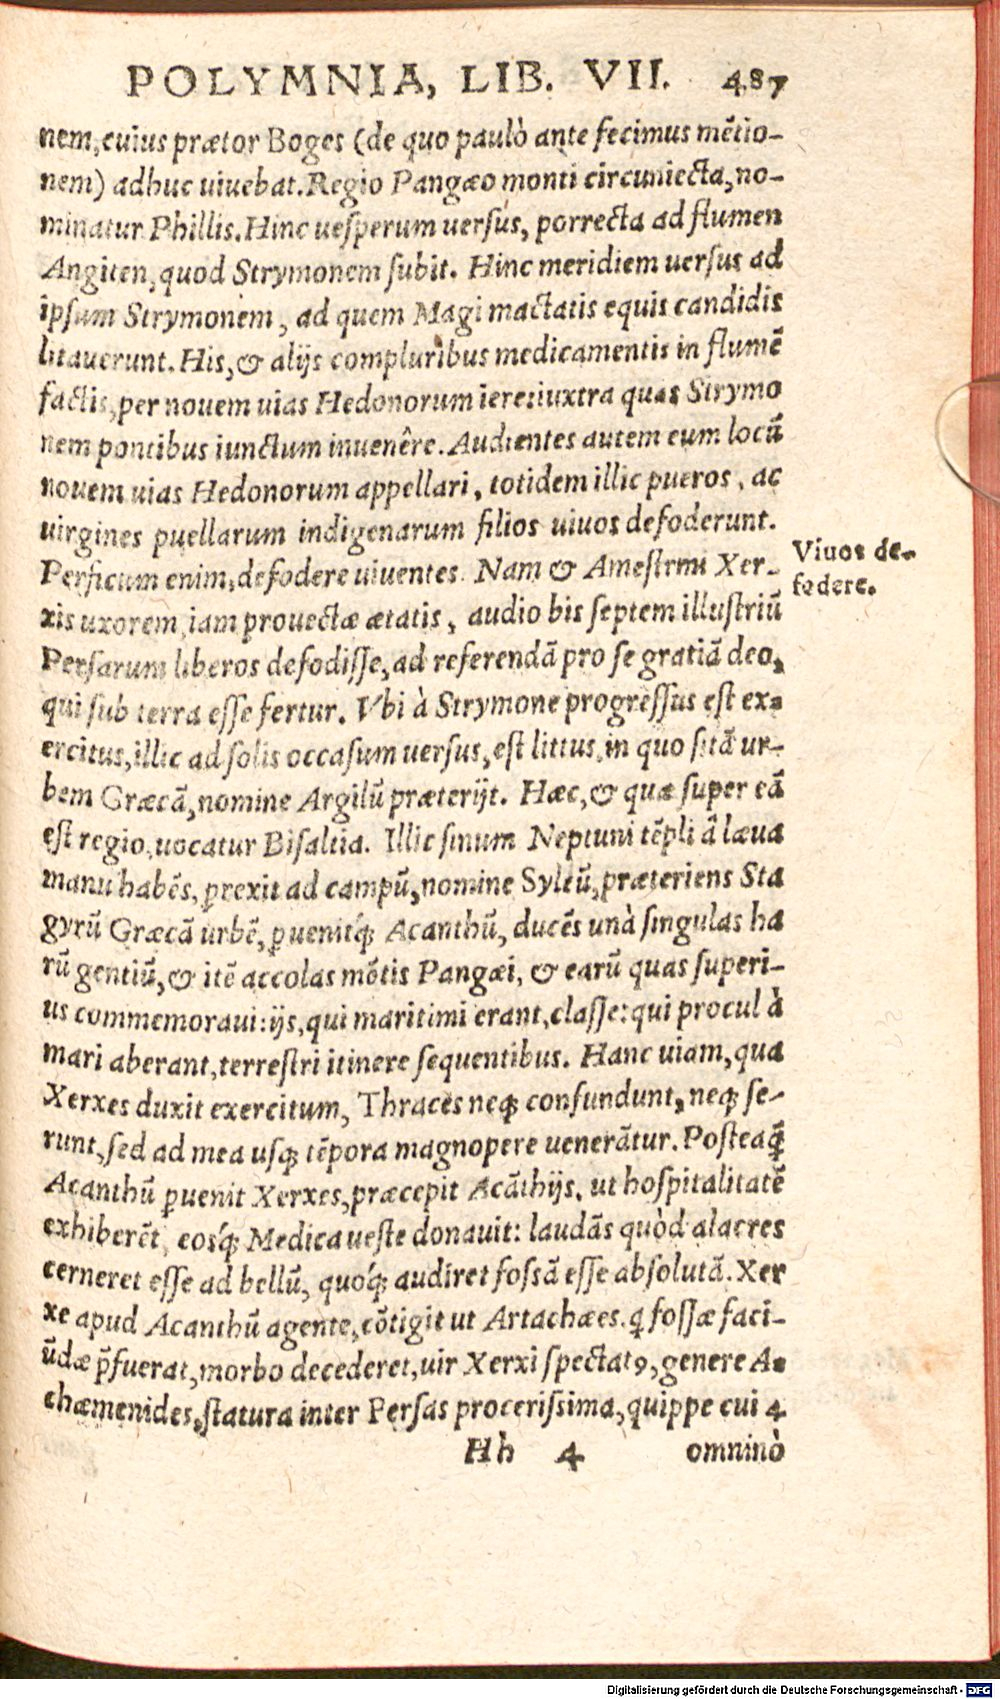 POLYMNIA, LIB. VII. 487
nem, cuius prætor Boges (de quo paulò ante fecimus mẽtio-
nem) adhuc uiuebat. Regio Pangæo monti circuniecta, no-
minatur Phillis. Hinc uesperum uersus, porrecta ad flumen
Angiten, quod Strymonem subit. Hinc meridiem uersus ad
ipsum Strymonem, ad quem Magi mactatis equis candidis
litauerunt. His, & alijs compluribus medicamentis in flumẽ
factis, per nouem uias Hedonorum iere: iuxtra quas Strymo
nem pontibus iunctum inuenêre. Audientes autem eum locũ
nouem uias Hedonorum appellari, totidem illic pueros, ac
uirgines puellarum indigenarum filios uiuos defoderunt.
Persicum enim, defodere uiuentes. Nam & Amestrin Xer-
Viuos de-
fodere.
xis uxorem iam prouectæ ætatis, audio bis septem illustriũ
Persarum liberos defodisse, ad referendã pro se gratiã deo,
qui sub terra esse fertur. Vbi à Strymone progressus est ex-
ercitus, illic ad solis occasum uersus, est littus, in quo sitã ur-
bem Græcã, nomine Argilũ præterijt. Hæc, & quæ super eã
est regio, uocatur Bisaltia. Illic sinum Neptuni tẽpli â læua
manu habẽs, ꝑrexit ad campũ, nomine Syleũ, præteriens Sta
gyrũ Græcã urbẽ, ꝑuenitq́; Acanthũ, ducẽs unà singulas ha
rũ gentiũ, & itẽ accolas mõtis Pangæi, & earũ quas superi-
us commemoraui: ijs, qui maritimi erant, classe: qui procul à
mari aberant, terrestri itinere sequentibus. Hanc uiam, qua
Xerxes duxit exercitum, Thraces neq; confundunt, neq; se-
runt, sed ad mea usq; tẽpora magnopere uenerãtur. Posteaq̃
Acanthũ ꝑuenit Xerxes, præcepit Acãthijs, ut hospitalitatẽ
exhiberẽt, eosq́; Medica ueste donauit: laudãs quòd alacres
cerneret esse ad bellũ, quoq́; audiret fossã esse absolutã. Xer
xe apud Acanthũ agente, cõtigit ut Artachæes, ꝗ fossæ faci-
ũdæ p̃fuerat, morbo decederet, uir Xerxi spectatꝰ, genere A-
chæmenides, statura inter Persas procerissima, quippe cui 4
Hh 4 omninò
Digitalisierung gefördert durch die Deutsche Forschungsgemeinschaft - DFG